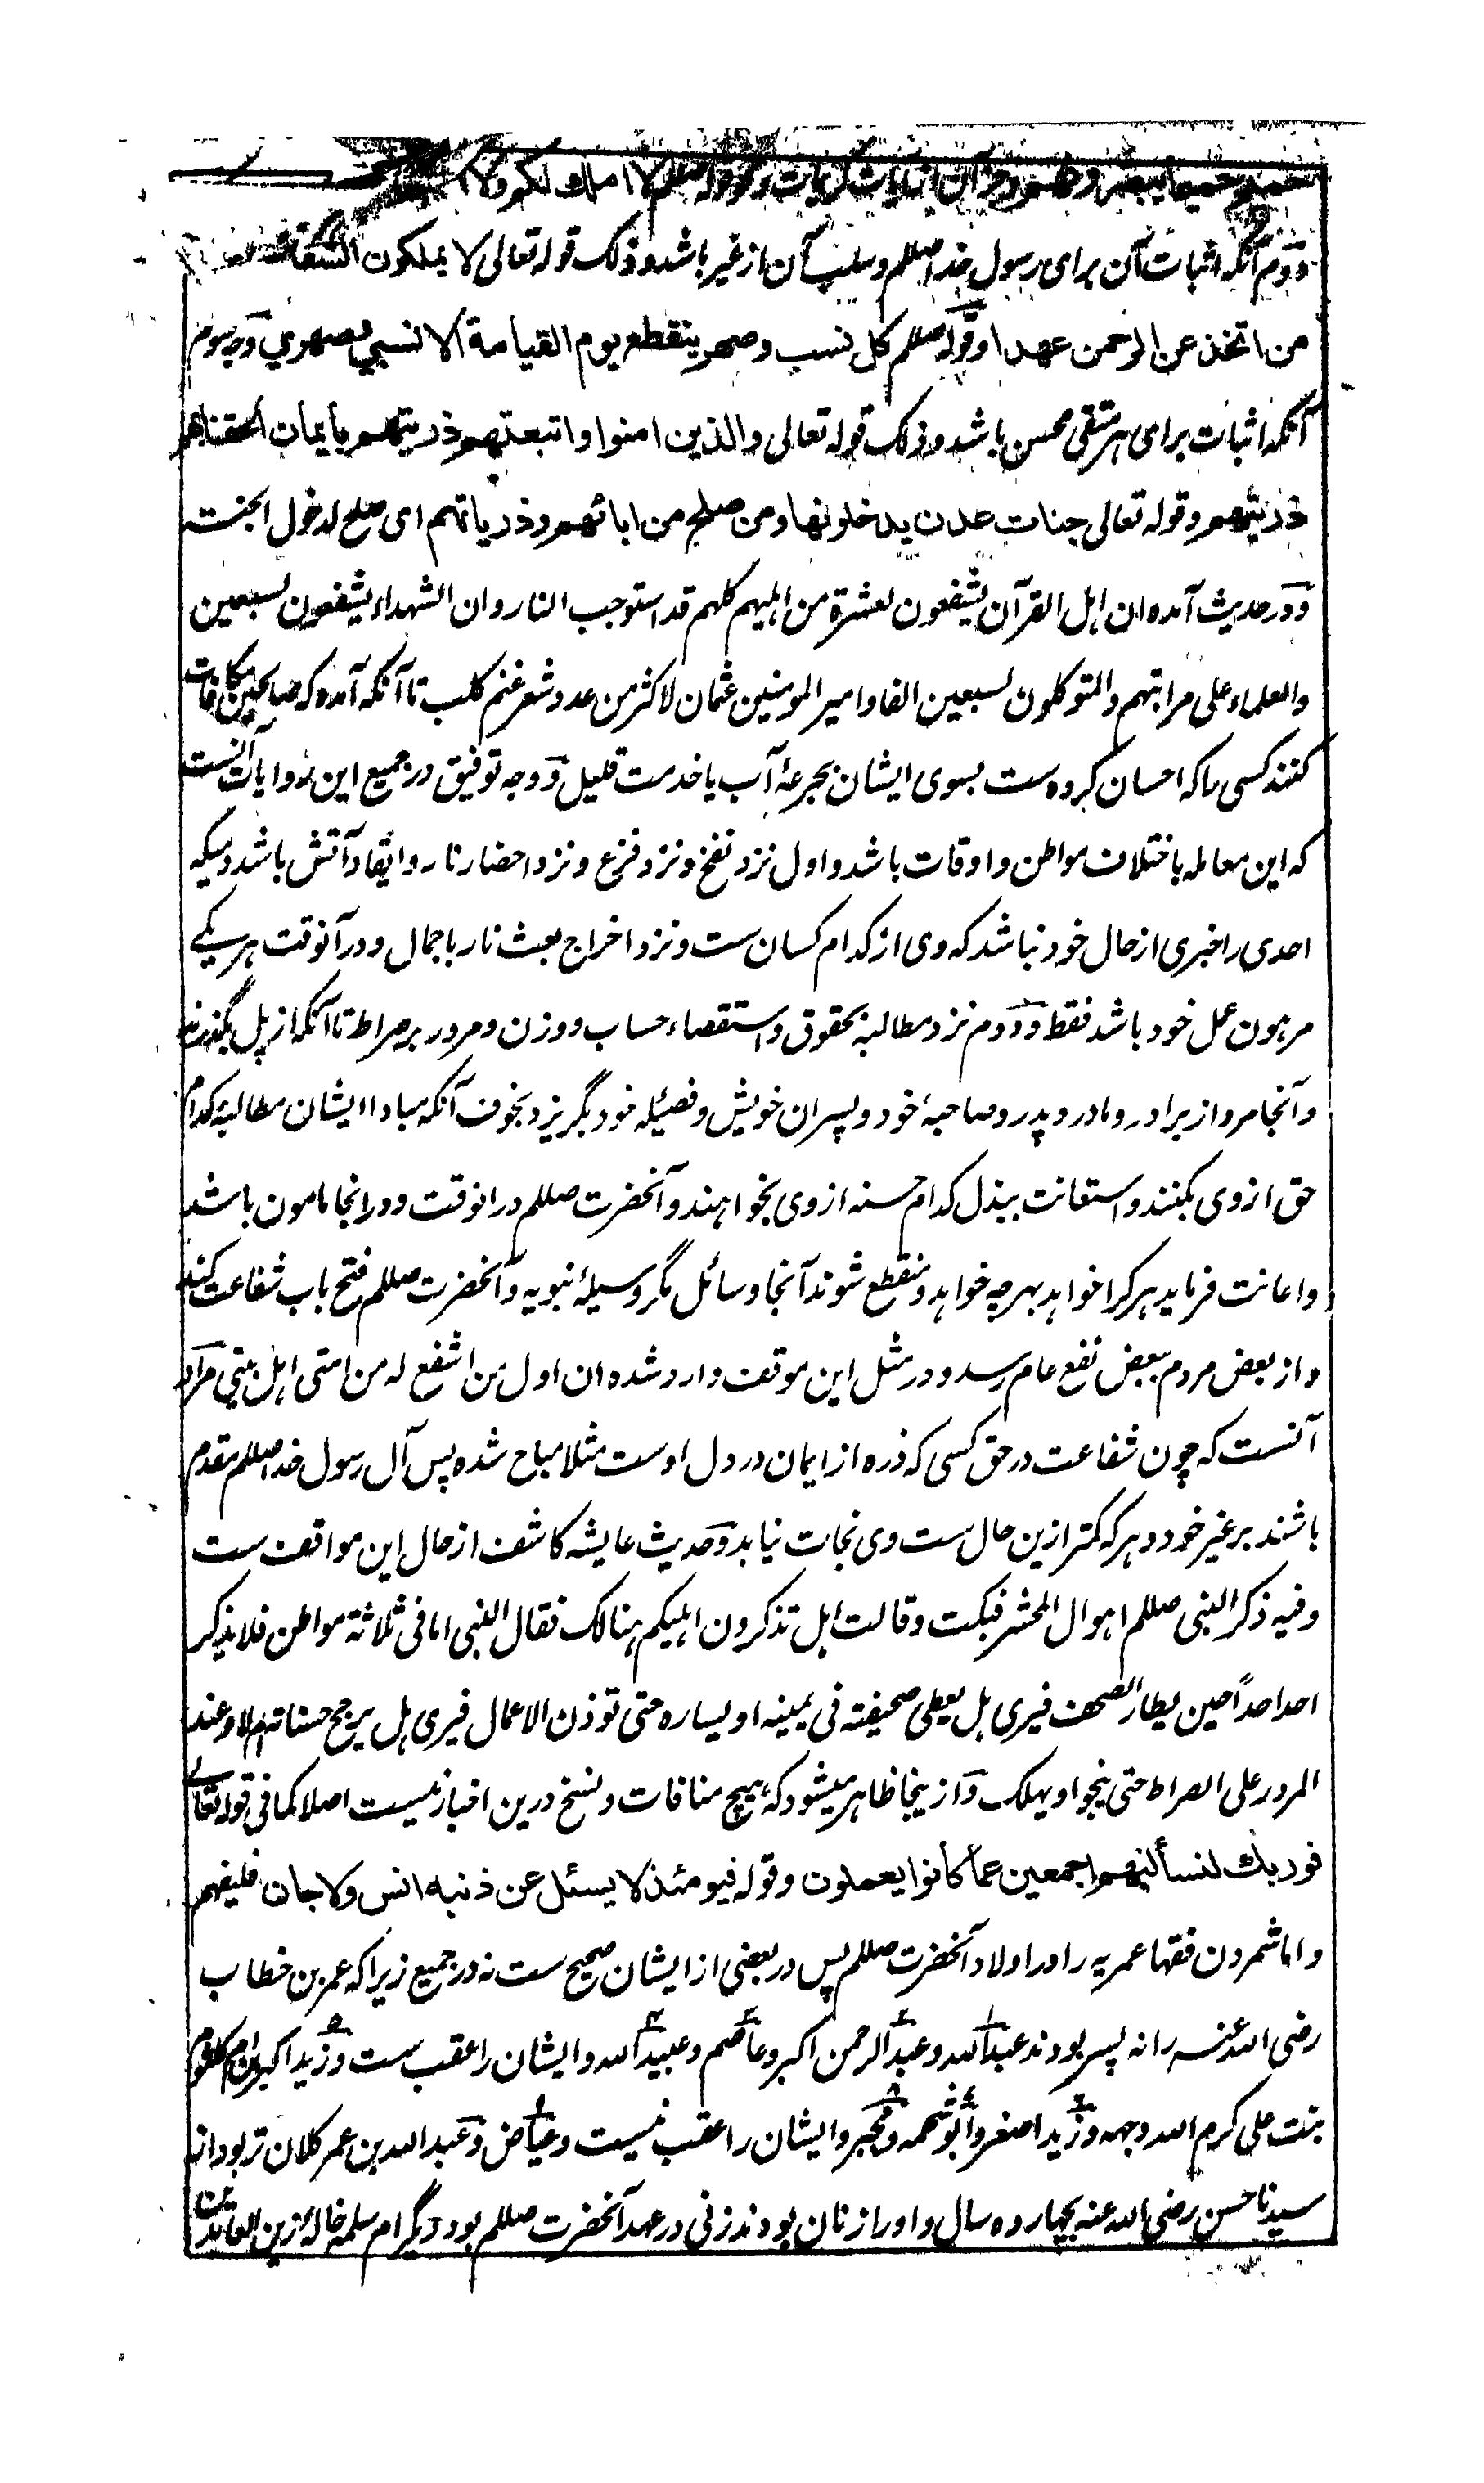 حمیم حمیما یبصرونهم وجز آن از آیات کریمات وقوله صللم لا املك لکم ولا
دوم آنکه اثبات آن برای رسول خدا صللم وسلب آن از غیر باشد وذلک قوله تعالی لا یملکون الشفاعة
من اتخذ عن الرحمن عهدا وقوله صللم کل نسب وصهر ینقطع یوم القیامة الا نسبي وصهري وجه سوم
آنکه اثبات برای هر متقی محسن باشد وذلک قوله تعالی والذین امنوا واتبعتهم ذریتهم بأیمان الحقنا بهم
ذریتهم وقوله تعالی جنات عدن یدخلونها ومن صلح من ابائهم وذریاتهم ای صلح لدخول الجنت
ودر حدیث آمده ان اہل القرآن یشفعون لعشرة من اہلیهم کلهم قد استوجب النار وان الشهداء یشفعون لسبعین
والعلماء علی مراتبهم والمتوکلون لسبعین الفا وامیر المومنین عثمان لاکثر من عدد شعر غنم کلب تا آنکه آمده که صالحین مکافات
کنند کسی را که احسان کرده ست بسوی ایشان بجرعۀ آب یا خدمت قلیل و وجه توفیق در جمیع این روایات آنست
که این معامله باختلاف مواطن واوقات باشد واول نزد نفخ ونزد فزع ونزد احضار نار وایقاد آتش باشد دمیکه
احدی را خبری از حال خود نباشد که وی از کدام کسان ست ونزد اخراج بعث نار باجمال ودر آنوقت هر یکے
مرہون عمل خود باشد فقط ودوم نزد مطالبہ بحقوق واستقصاء حساب ووزن ومرور بر صراط تا آنکه از پل بگذرند
وآنجا مرد از برادر ومادر وپدر وصاحبۀ خود وپسران خویش وفصیلہ خود بگریزد بخوف آنکه مبادا ایشان مطالبۀ کدام
حق از وی بکنند واستعانت ببذل کدام حسنه از وی بخواہند وآنحضرت صللم در انوقت ودر انجا مامون باشد
واعانت فرماید ہر کرا خواہد بہرچہ خواہد ومنقطع شوند آنجا وسائل مگر وسیلۀ نبویه وآنحضرت صللم فتح باب شفاعت کند
واز بعض مردم ببعض نفع عام رسد ودر مثل این موقف وارد شده ان اول من اشفع له من امتی اہل بیتی مراد
آنست که چون شفاعت در حق کسی که ذره از ایمان در دل اوست مثلا مباح شده پس آل رسول خدا صللم مقدم
باشند بر غیر خود وہر که کمتر ازین حال ست وی نجات نیابد وحدیث عایشه کاشف از حال این مواقف ست
وفیه ذکر النبی صللم اہوال المحشر فبکت وقالت ہل تذکرون اہلیکم ہنالک فقال النبی اما فی ثلاثة مواطن فلا یذکر
احد احداً حین یطار الصحف فیری ہل یعطی صحیفته فی یمینه او یساره حتی توزن الاعمال فیری ہل یرجح حسناتهم ام لا وعند
المرور علی الصراط حتی ینجوا ویہلک وازینجا ظاہر میشود که ہیچ منافات ونسخ درین اخبار نیست اصلا کما فی قوله تعالی
فوربك لنسألنهم اجمعین عما کانوا یعملون وقوله فیومئذ لا یسئل عن ذنبه انس ولا جان فلیفهم
واما شمردن فقہا عمریه را در اولاد آنحضرت صللم پس در بعضی از ایشان صحیح ست نه در جمیع زیرا که عمر بن خطاب
رضی اللہ عنہ را نه پسر بودند عبد اللہ وعبد الرحمن اکبر وعاصم وعبید اللہ وایشان را عقب ست وزید اکبر از ام کلثوم
بنت علی کرم اللہ وجہہ وزید اصغر وابو شحمه ومجبر وایشان را عقب نیست وعیاض وعبد اللہ بن عمر کلان تر بود از
سیدنا حسن رضی اللہ عنہ بچهارده سال واو را زنان بودند زنی در عهد آنحضرت صللم بود دیگر ام سلمه خالۀ زین العابدین